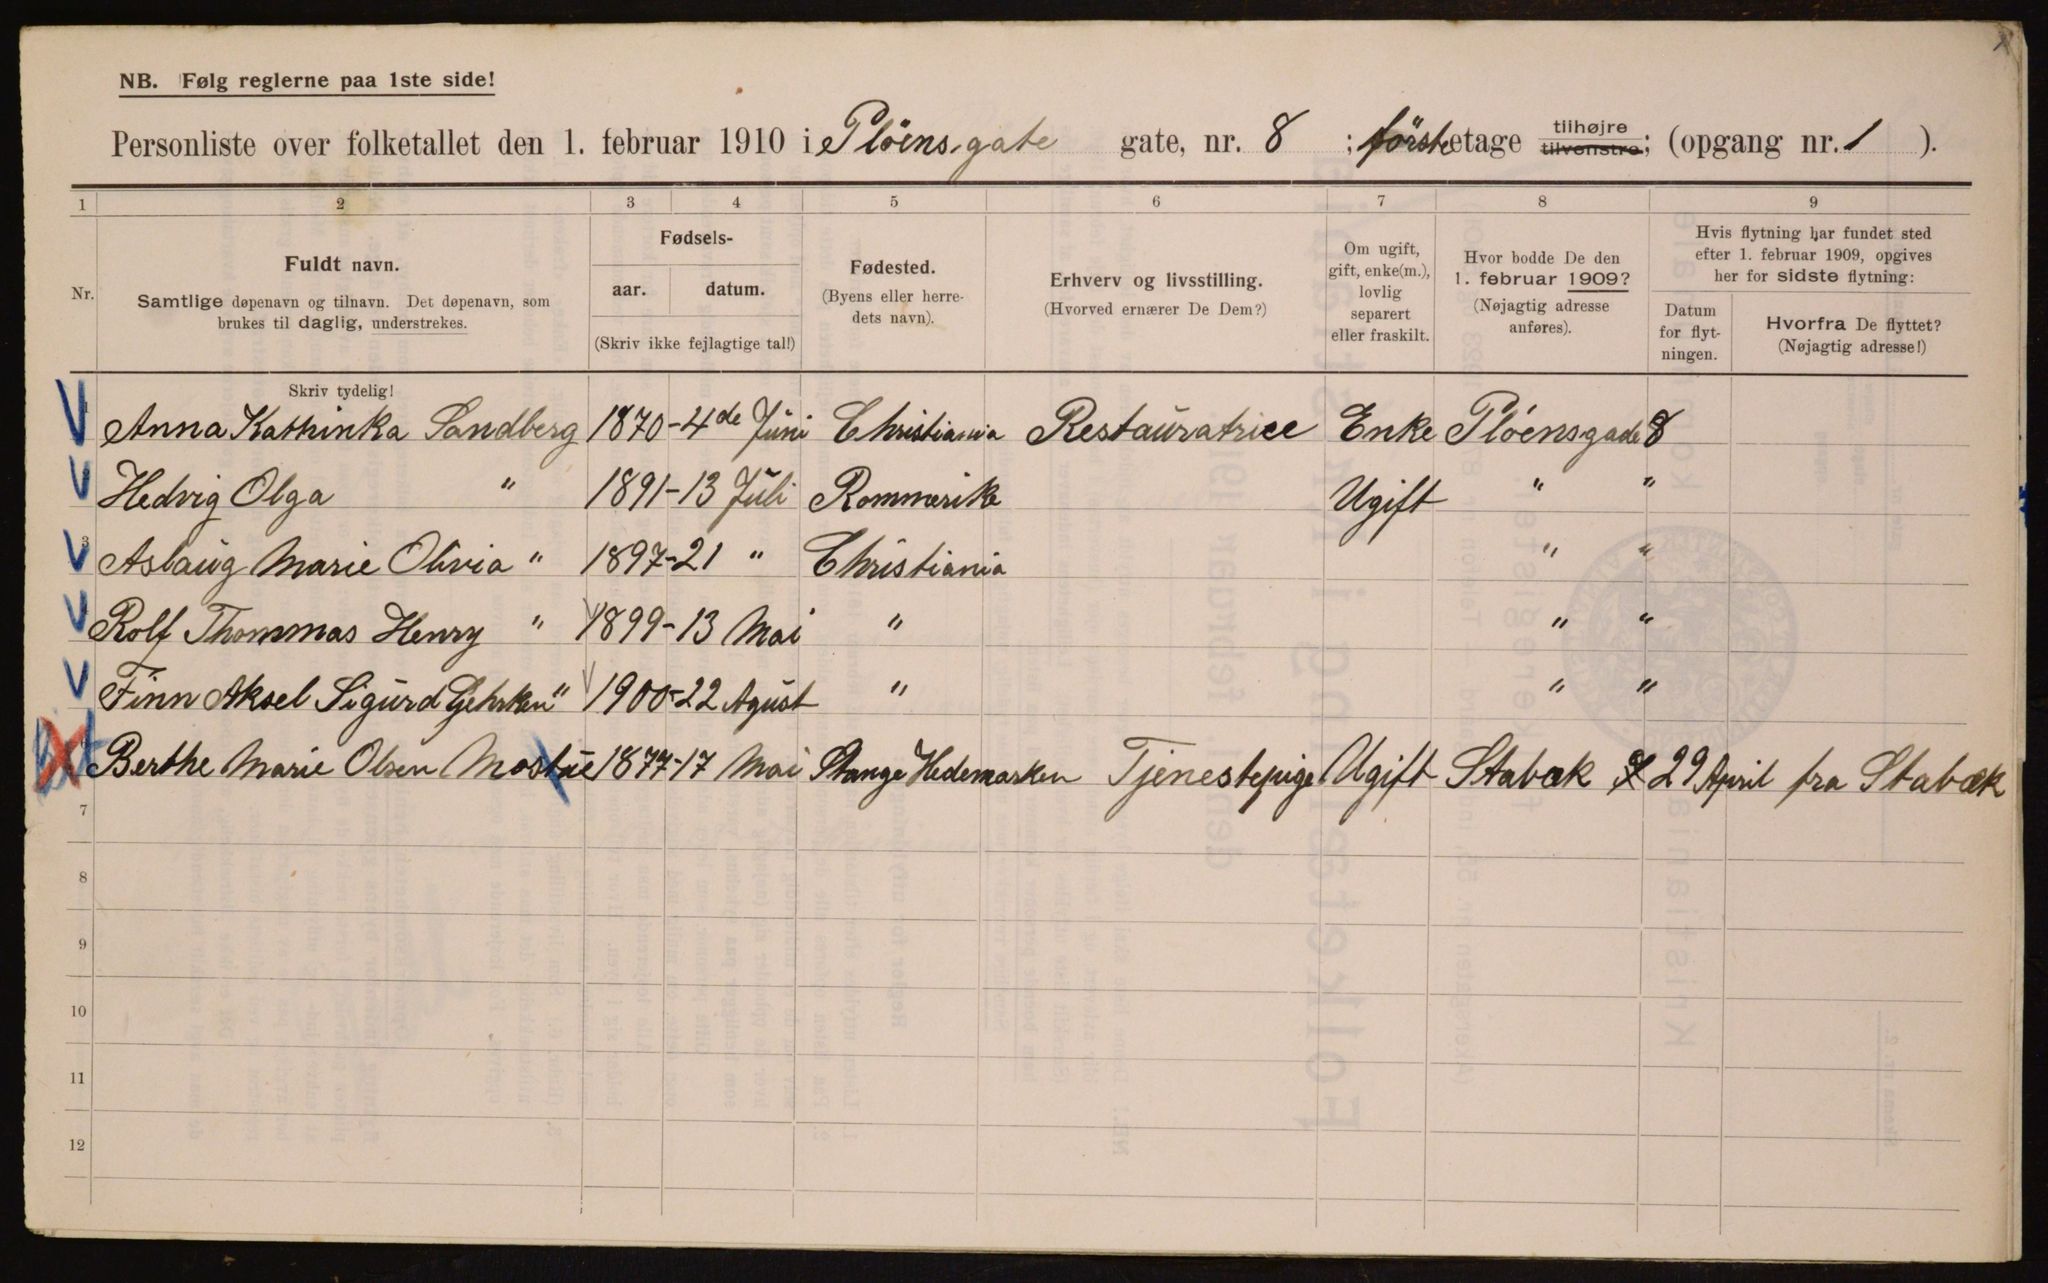 NB. Følg reglerne paa 1ste side!
Personliste over folketallet den 1. februar 1910 i Plöens.gate gate, nr. 8 ; første etage tilhøjre tilvenstre; (opgang nr. 1 ).
1 2 3 4 5 6 7 8 9
Nr.
Fuldt navn.
Samtlige døpenavn og tilnavn. Det døpenavn, som
brukes til daglig, understrekes.
Fødsels-
aar. datum.
(Skriv ikke fejlagtige tal!)
Fødested.
(Byens eller herre-
dets navn).
Erhverv og livsstilling.
(Hvorved ernærer De Dem?)
Om ugift,
gift, enke(m.),
lovlig
separert
eller fraskilt.
Hvor bodde De den
1. februar 1909?
(Nøjagtig adresse
anføres).
Hvis flytning har fundet sted
efter 1. februar 1909, opgives
her for sidste flytning:
Datum
for flyt-
ningen.
Hvorfra De flyttet?
(Nøjagtig adresse!)
Skriv tydelig!
Anna Kathinka Sandberg 1870 - 4de Juni Christiania Restauratrice Enke Plöensgade 8
Hedvig Olga " 1891 - 13 Juli Rommerike Ugift " "
3 Aslaug Marie Olivia " 1897 - 21 " Christiania " "
Rolf Thommas Henry " 1899 - 13 Mai " " "
Finn Aksel Sigurd Gjehrken " 1900 - 22 Agust " " "
Berthe Marie Olsen Mostue 1877 - 17 Mai Stange Hedemarken Tjenestepige Ugift Stabæk 29 April fra Stabæk
7
8
9
10
11
12